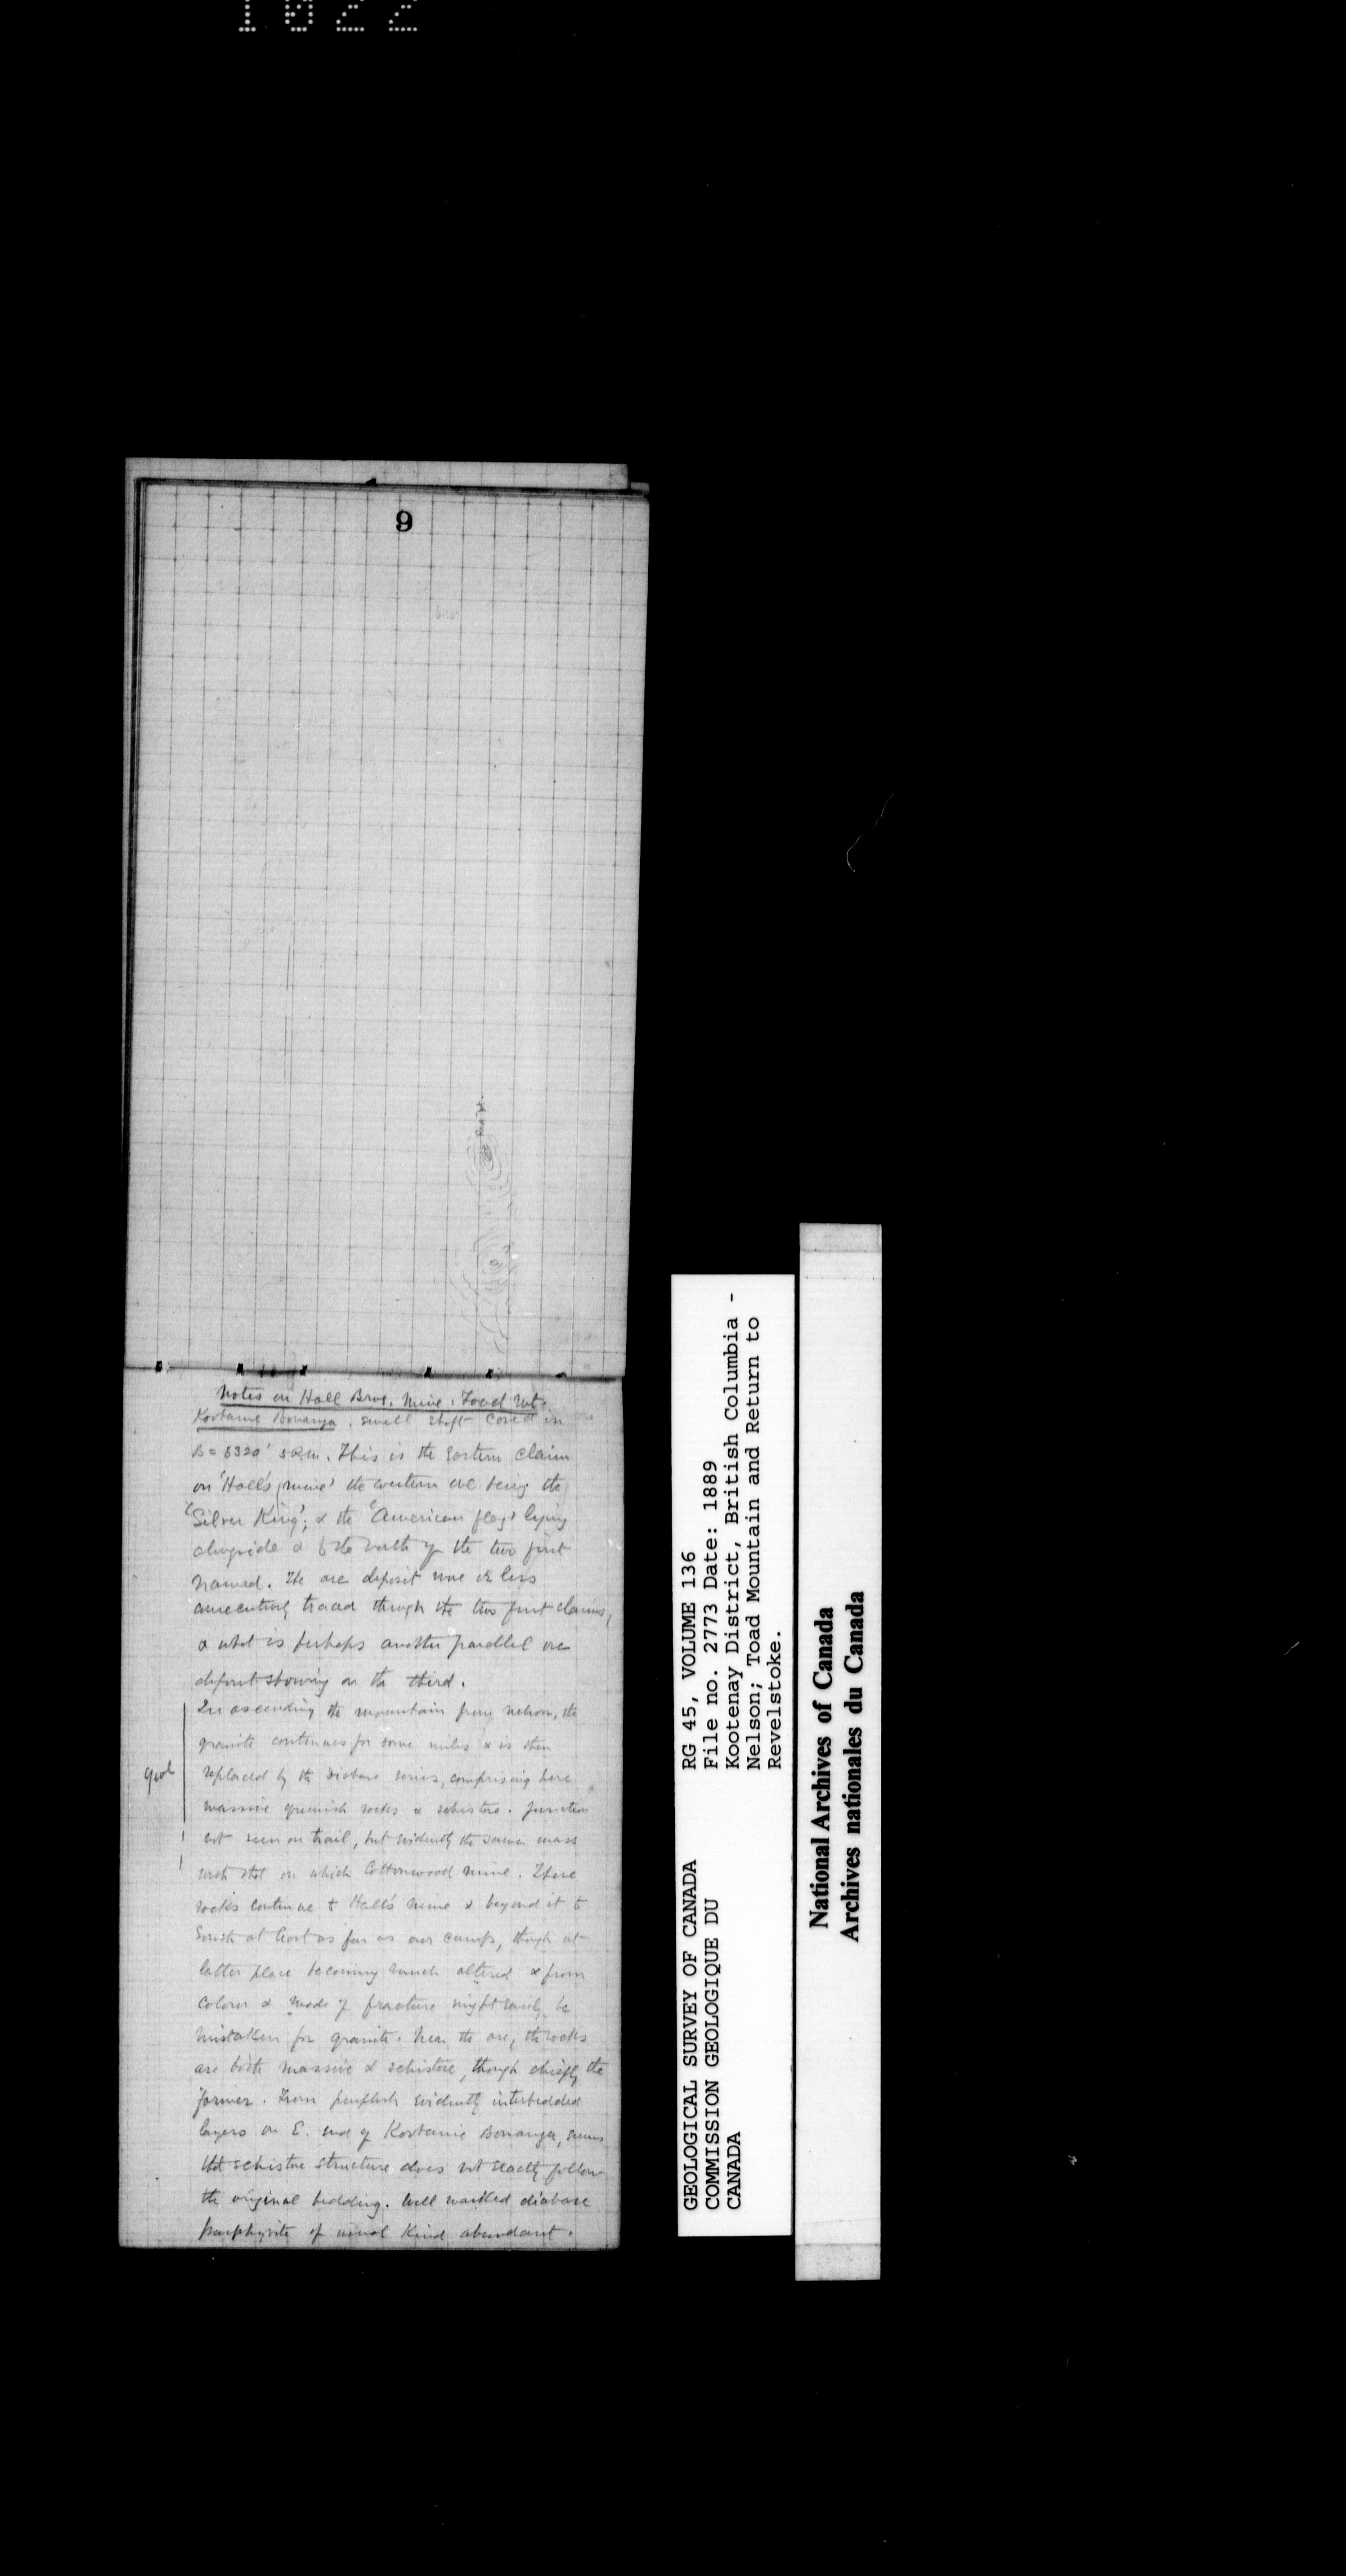 1022
9
Red Mt.
Notes on Hall Bros. Mine. Toad Mt.
Kootanie Bonanza, small shaft caved in
B = 5320' 5 P.M. This is the Eastern claim
on 'Hall's mine' the western one being the
'Silver King'; & the 'American flag' lying
alongside & to the north of the two first
named. The ore deposit more or less
consecutively traced through the two first claims,
& what is perhaps another parallel ore
deposit showing on the third.
In ascending the mountain from Nelson, the
granite continues for some miles & is then
Geol
replaced by the diabase series, comprising here
massive greenish rocks & schistose. Junction
not seen on trail, but evidently the same mass
with that on which Cottonwood mine. These
rocks continue to Hall's mine & beyond it to
South at least as far as our camp, though at
latter place becoming much altered & from
colour & mode of fracture might easily be
mistaken for granite. Near the ore, the rocks
are both massive & schistose, though chiefly the
former. From purplish evidently interbedded
layers on E. end of Kootanie Bonanza, seems
that schistose structure does not exactly follow
the original bedding. Well marked diabase
porphyrite of usual kind abundant.
GEOLOGICAL SURVEY OF CANADA
COMMISSION GEOLOGIQUE DU
CANADA
RG 45, VOLUME 136
File no. 2773 Date: 1889
Kootenay District, British Columbia -
Nelson; Toad Mountain and Return to
Revelstoke.
National Archives of Canada
Archives nationales du Canada